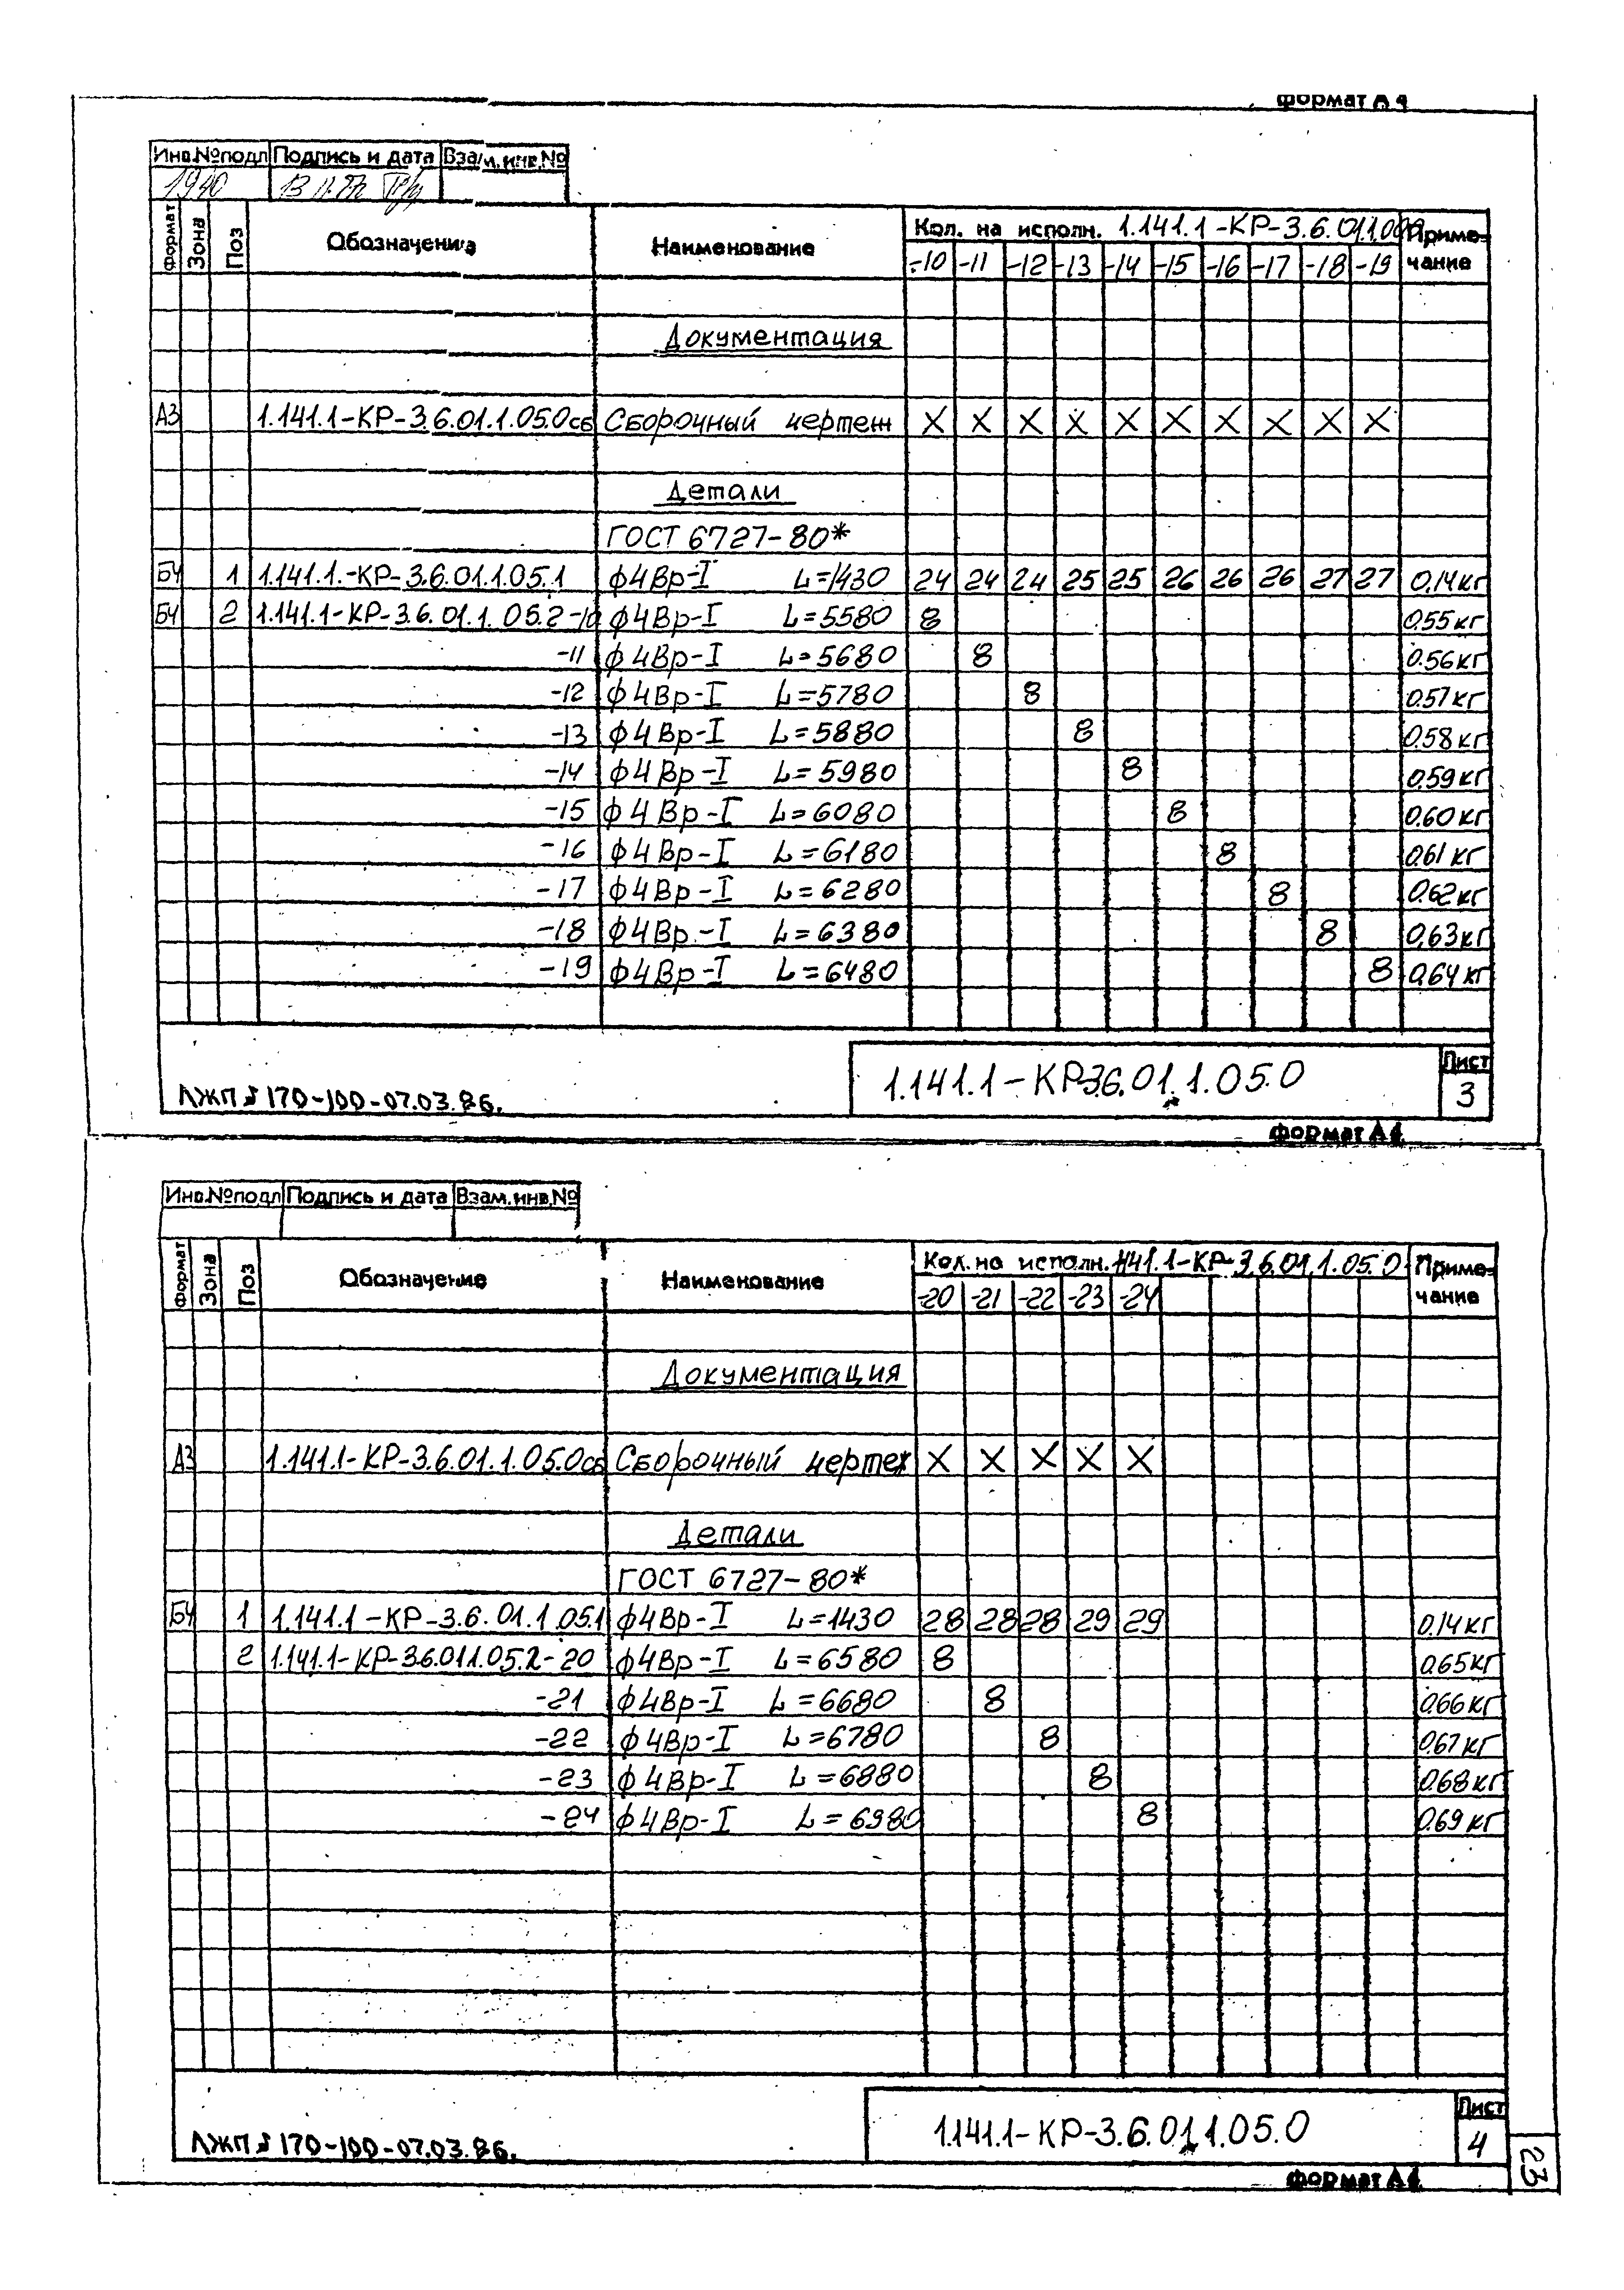 формат А4
Инв.№подл Подпись и дата Взам.инв.№
1940
Формат Зона Поз Обозначение Наименование Кол. на исполн. 1.141.1-КР-3.6.01.1.05.0 Приме-
-10 -11 -12 -13 -14 -15 -16 -17 -18 -19 чание
Документация
А3 1.141.1-КР-3.6.01.1.05.0сб Сборочный чертеж X X X X X X X X X X
Детали
ГОСТ 6727-80*
БЧ 1 1.141.1.-КР-3.6.01.1.05.1 ф4Вр-I L=1430 24 24 24 25 25 26 26 26 27 27 0,14кг
БЧ 2 1.141.1-КР-3.6.01.1.05.2-10 ф4Вр-I L=5580 8 0.55кг
-11 ф4Вр-I L=5680 8 0.56кг
-12 ф4Вр-I L=5780 8 0.57кг
-13 ф4Вр-I L=5880 8 0.58кг
-14 ф4Вр-I L=5980 8 0.59кг
-15 ф4Вр-I L=6080 8 0.60кг
-16 ф4Вр-I L=6180 8 0.61кг
-17 ф4Вр-I L=6280 8 0.62кг
-18 ф4Вр-I L=6380 8 0.63кг
-19 ф4Вр-I L=6480 8 0.64кг
ЛЖП з 170-100-07.03.86.
1.141.1-КР-3.6.01.1.05.0
Лист
3
формат А4
Инв.№подл Подпись и дата Взам.инв.№
Формат Зона Поз Обозначение Наименование Кол.на исполн.1.141.1-КР-3.6.01.1.05.0 Приме-
-20 -21 -22 -23 -24 чание
Документация
А3 1.141.1-КР-3.6.01.1.05.0сб Сборочный чертеж X X X X X
Детали
ГОСТ 6727-80*
БЧ 1 1.141.1-КР-3.6.01.1.05.1 ф4Вр-I L=1430 28 28 28 29 29 0.14кг
2 1.141.1-КР-3.6.01.1.05.2-20 ф4Вр-I L=6580 8 0.65кг
-21 ф4Вр-I L=6680 8 0.66кг
-22 ф4Вр-I L=6780 8 0.67кг
-23 ф4Вр-I L=6880 8 0.68кг
-24 ф4Вр-I L=6980 8 0.69кг
ЛЖП з 170-100-07.03.86.
1.141.1-КР-3.6.01.1.05.0
Лист
4
формат А4
23